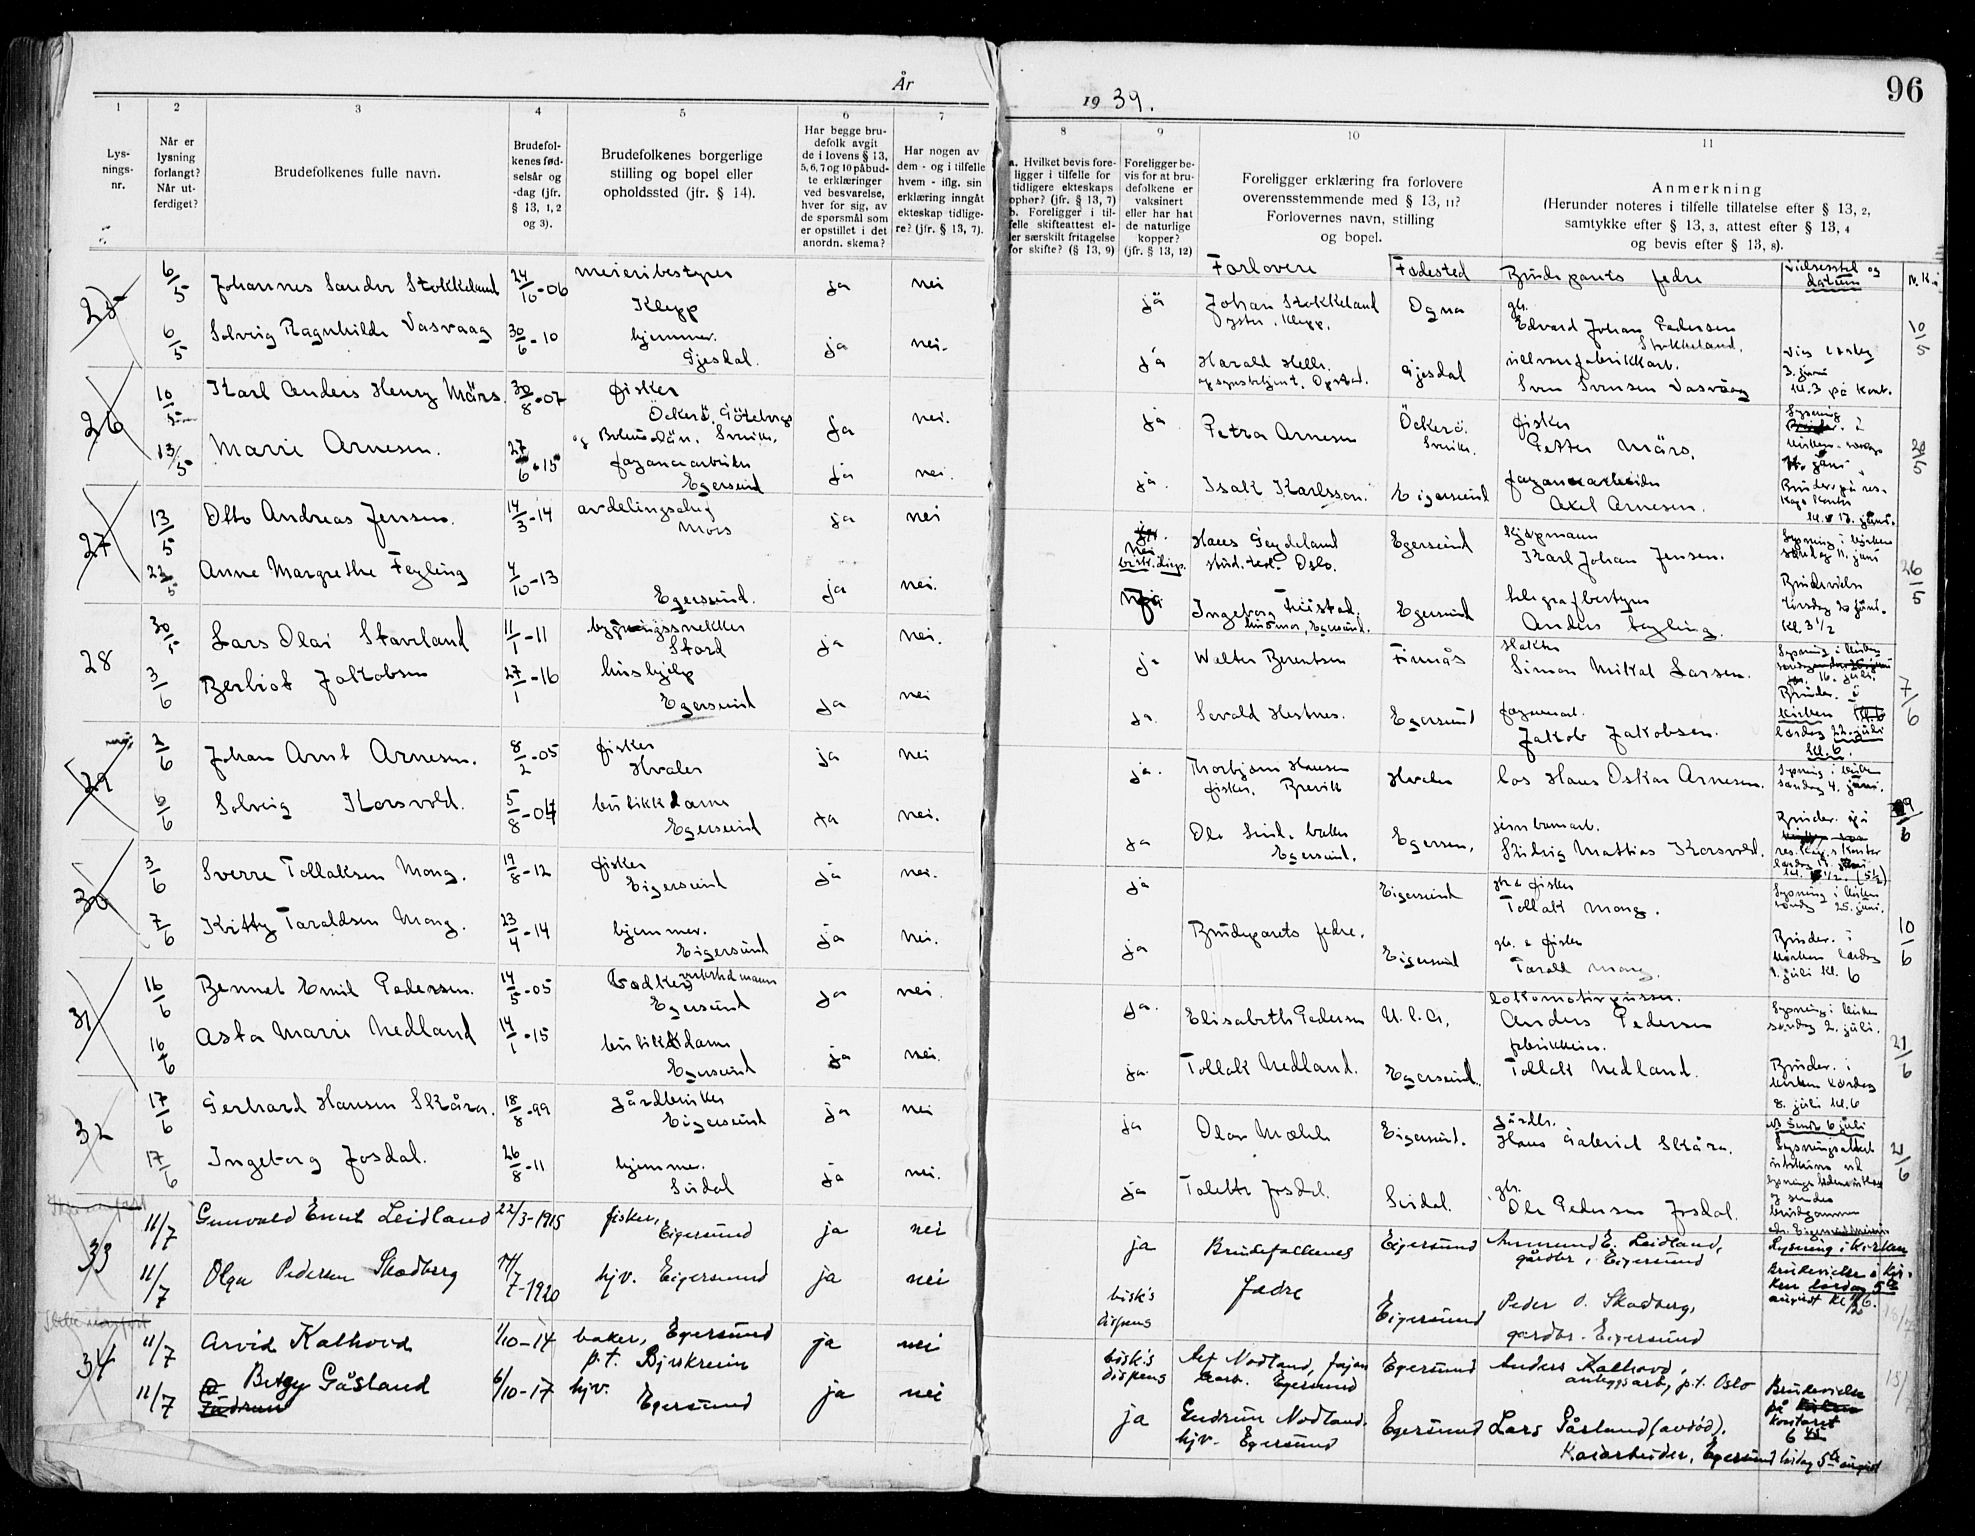 År
1939.
96
1
2
3
4
5
6
7
8
9
10
11
Lys-
nings-
nr.
Når er
lysning
forlangt?
Når ut-
ferdiget?
Brudefolkenes fulle navn.
Brudefol-
kenes fød-
selsår og
-dag (jfr.
§ 13, 1, 2
og 3).
Brudefolkenes borgerlige
stilling og bopel eller
opholdssted (jfr. § 14).
Har begge bru-
defolk avgit
de i lovens § 13,
5, 6, 7 og 10 påbud-
te erklæringer
ved besvarelse,
hver for sig, av
de spørsmål som
er opstillet i det
anordn. skema?
Har nogen av
dem - og i tilfelle
hvem - iflg. sin
erklæring inngått
ekteskap tidlige-
re? (jfr. § 13, 7).
a. Hvilket bevis fore-
ligger i tilfelle for
tidligere ekteskaps
ophør? (jfr. § 13, 7)
b. Foreligger i til-
felle skifteattest el-
ler særskilt fritagelse
for skifte? (§ 13, 9)
Foreligger be-
vis for at bru-
defolkene er
vaksinert
eller har hat
de naturlige
kopper?
(jfr. § 13, 12)
Foreligger erklæring fra forlovere
overensstemmende med § 13, 11?
Forlovernes navn, stilling
og bopel.
Anmerkning
(Herunder noteres i tilfelle tillatelse efter § 13, 2,
samtykke efter § 13, 3, attest efter § 13, 4
og bevis efter § 13, 8).
Forlovere
Fødested
Brudeparets fedre
vielsessted og
datum
25
6/5 Johannes Sander Stokkeland 24/10-06 meieribestyrer
Klepp
ja nei
ja Johan Stokkeland Ogna gbr.
Edvard Johan Pedersen
Stokkeland.
10/5
6/5 Solveig Ragnhilde Vasvaag 30/6-10 hjemmev.
Gjesdal.
ja nei.
ja Gjesdal ullvarefabrikkarb.
Sven Svensen Vasvåag
3. juni
kl. 3 på kont.
26
10/5 Karl Anders Henry Märs. 30/8-07 fisker
Öckerö, Göteborgs
og Bohuslän. Sverike.
ja nei.
ja Petra Arnesen Öckerö.
Sverike.
fisker
Petter Märs.
20/5
13/5 Marie Arnesen. 27/6-15 fayancearbeider
Egersund
ja nei.
ja. Isak Karlsson. Eigersund fayancearbeider
Axel Arnesen.
27
13/5 Otto Andreas Jensen. 14/3-14 avdelingssjef
Moss
ja nei
Nei
Hans Geydeland
stud. teol. Oslo.
Egersund kjøpmann
Karl Johan Jensen.
Lysning i kirken
søndag 11. juni
26/5
22/5 Anne Margrethe Feyling 4/10-13
Egersund.
ja nei.
Ingeborg Friistad.
husmor, Egersund.
Egersund telegrafbestyrer
Anders Feyling.
Brudevielse
kl. 3 1/2
28
30/5 Lars Olai Stavland 11/1-11 bygningssnekker
Stord
ja nei.
ja Walter Berentsen Finnås slakter
Simon Mikal Larsen.
Lysning i kirken
16. juli.
7/6
3/6 Berliot Jakobsen 27/1-16 hushjelp
Egersund
ja nei
ja. Sevald Hestnes. Egersund fayancearb.
Jakob Jakobsen.
Brudev. i
kirken
lørdag 22. juli
kl. 6.
29
2/6 Johan Arnt Arnesen. 8/2-05 fisker
Hvaler
ja nei
ja. Thorbjørn Hansen
fisker. Brevik
Hvaler los Hans Oskar Arnesen.
Lysning i kirken
søndag 4. juni.
6/6 Solveig Korsvold. 5/8-04 butikkdame
Egersund
ja nei.
ja Ole Sund. baker
Egersund.
Egersun. jernbanearb.
Ludvig Mattias Korsvold.
30
3/6 Sverre Tollaksen Mong. 19/8-12 fisker
Eigersund
ja nei.
ja Eigersund gbr & fisker
Tollak Mong.
Lysning i kirken
søndag 25. juni.
7/6 Kitty Taraldsen Mong. 23/4-14 hjemmev.
Eigersund
ja nei.
ja Brudeparets fedre. Eigersund gbr. & fisker
Tarald Mong.
Brudev. i
kirken lørdag
1. juli kl. 6
10/6
31
16/6 Bennet Emil Pedersen. 14/5-05
Egersund
ja nei.
ja. Elisabeth Pedersen U.S.A. lokomotivpusser.
Anders Pedersen
Lysning i kirken
søndag 2. juli.
21/6
16/6 Asta Marie Nedland 14/1-15 butikkdame
Egersund
ja nei.
ja. Tollak Nedland. Egersund.
Tollak Nedland.
Brudev. i
kirken lørdag
8. juli kl. 6
32
17/6 Gerhard Hansen Skåra. 18/8-99 gårdbruker
Eigersund
ja nei
ja Olav Mæhle Eigersund. gårdbr.
Hans Gabriel Skåra.
21/6
17/6 Ingeborg Josdal. 26/8-11 hjemmev.
Sirdal
ja nei.
ja Tolette Josdal. Sirdal. gbr.
Ole Pedersen Josdal.
33
11/7 Gunvald Emil Leidland 22/3-1915 fisker,
Eigersund
ja nei
ja Brudefolkenes Eigersund Ammund E. Leidland,
gårdbr, Eigersund
Lysning i kirken
11/7 Olga Pedersen Skadberg 7-1920 hjv. Eigersund ja nei
bisk's
dispens
fedre
Eigersund Peder O. Skadberg,
gardbr. Eigersund
Brudevielse i kir-
ken lørdag 5te
august kl. 6.
34
11/7 Arvid Kalhovd 1/10-14 baker, Egersund
p.t. Bjerkreim
ja nei
bisk's
dispens
Alf Nodland, fajan
searb. Egersund
Egersund Anders Kalhovd,
anleggsarb, p.t. Oslo
11/7 Betzy Gåsland 6/10-17 hjv.
Egersund
ja nei
ja Gudrun Nodland.
hjv. Egersund
Egersund Lars Gåsland (avdød).
Kaiarbeider, Egersund
Brudevielse
på
kontoret
6 45
lørdag 5te august